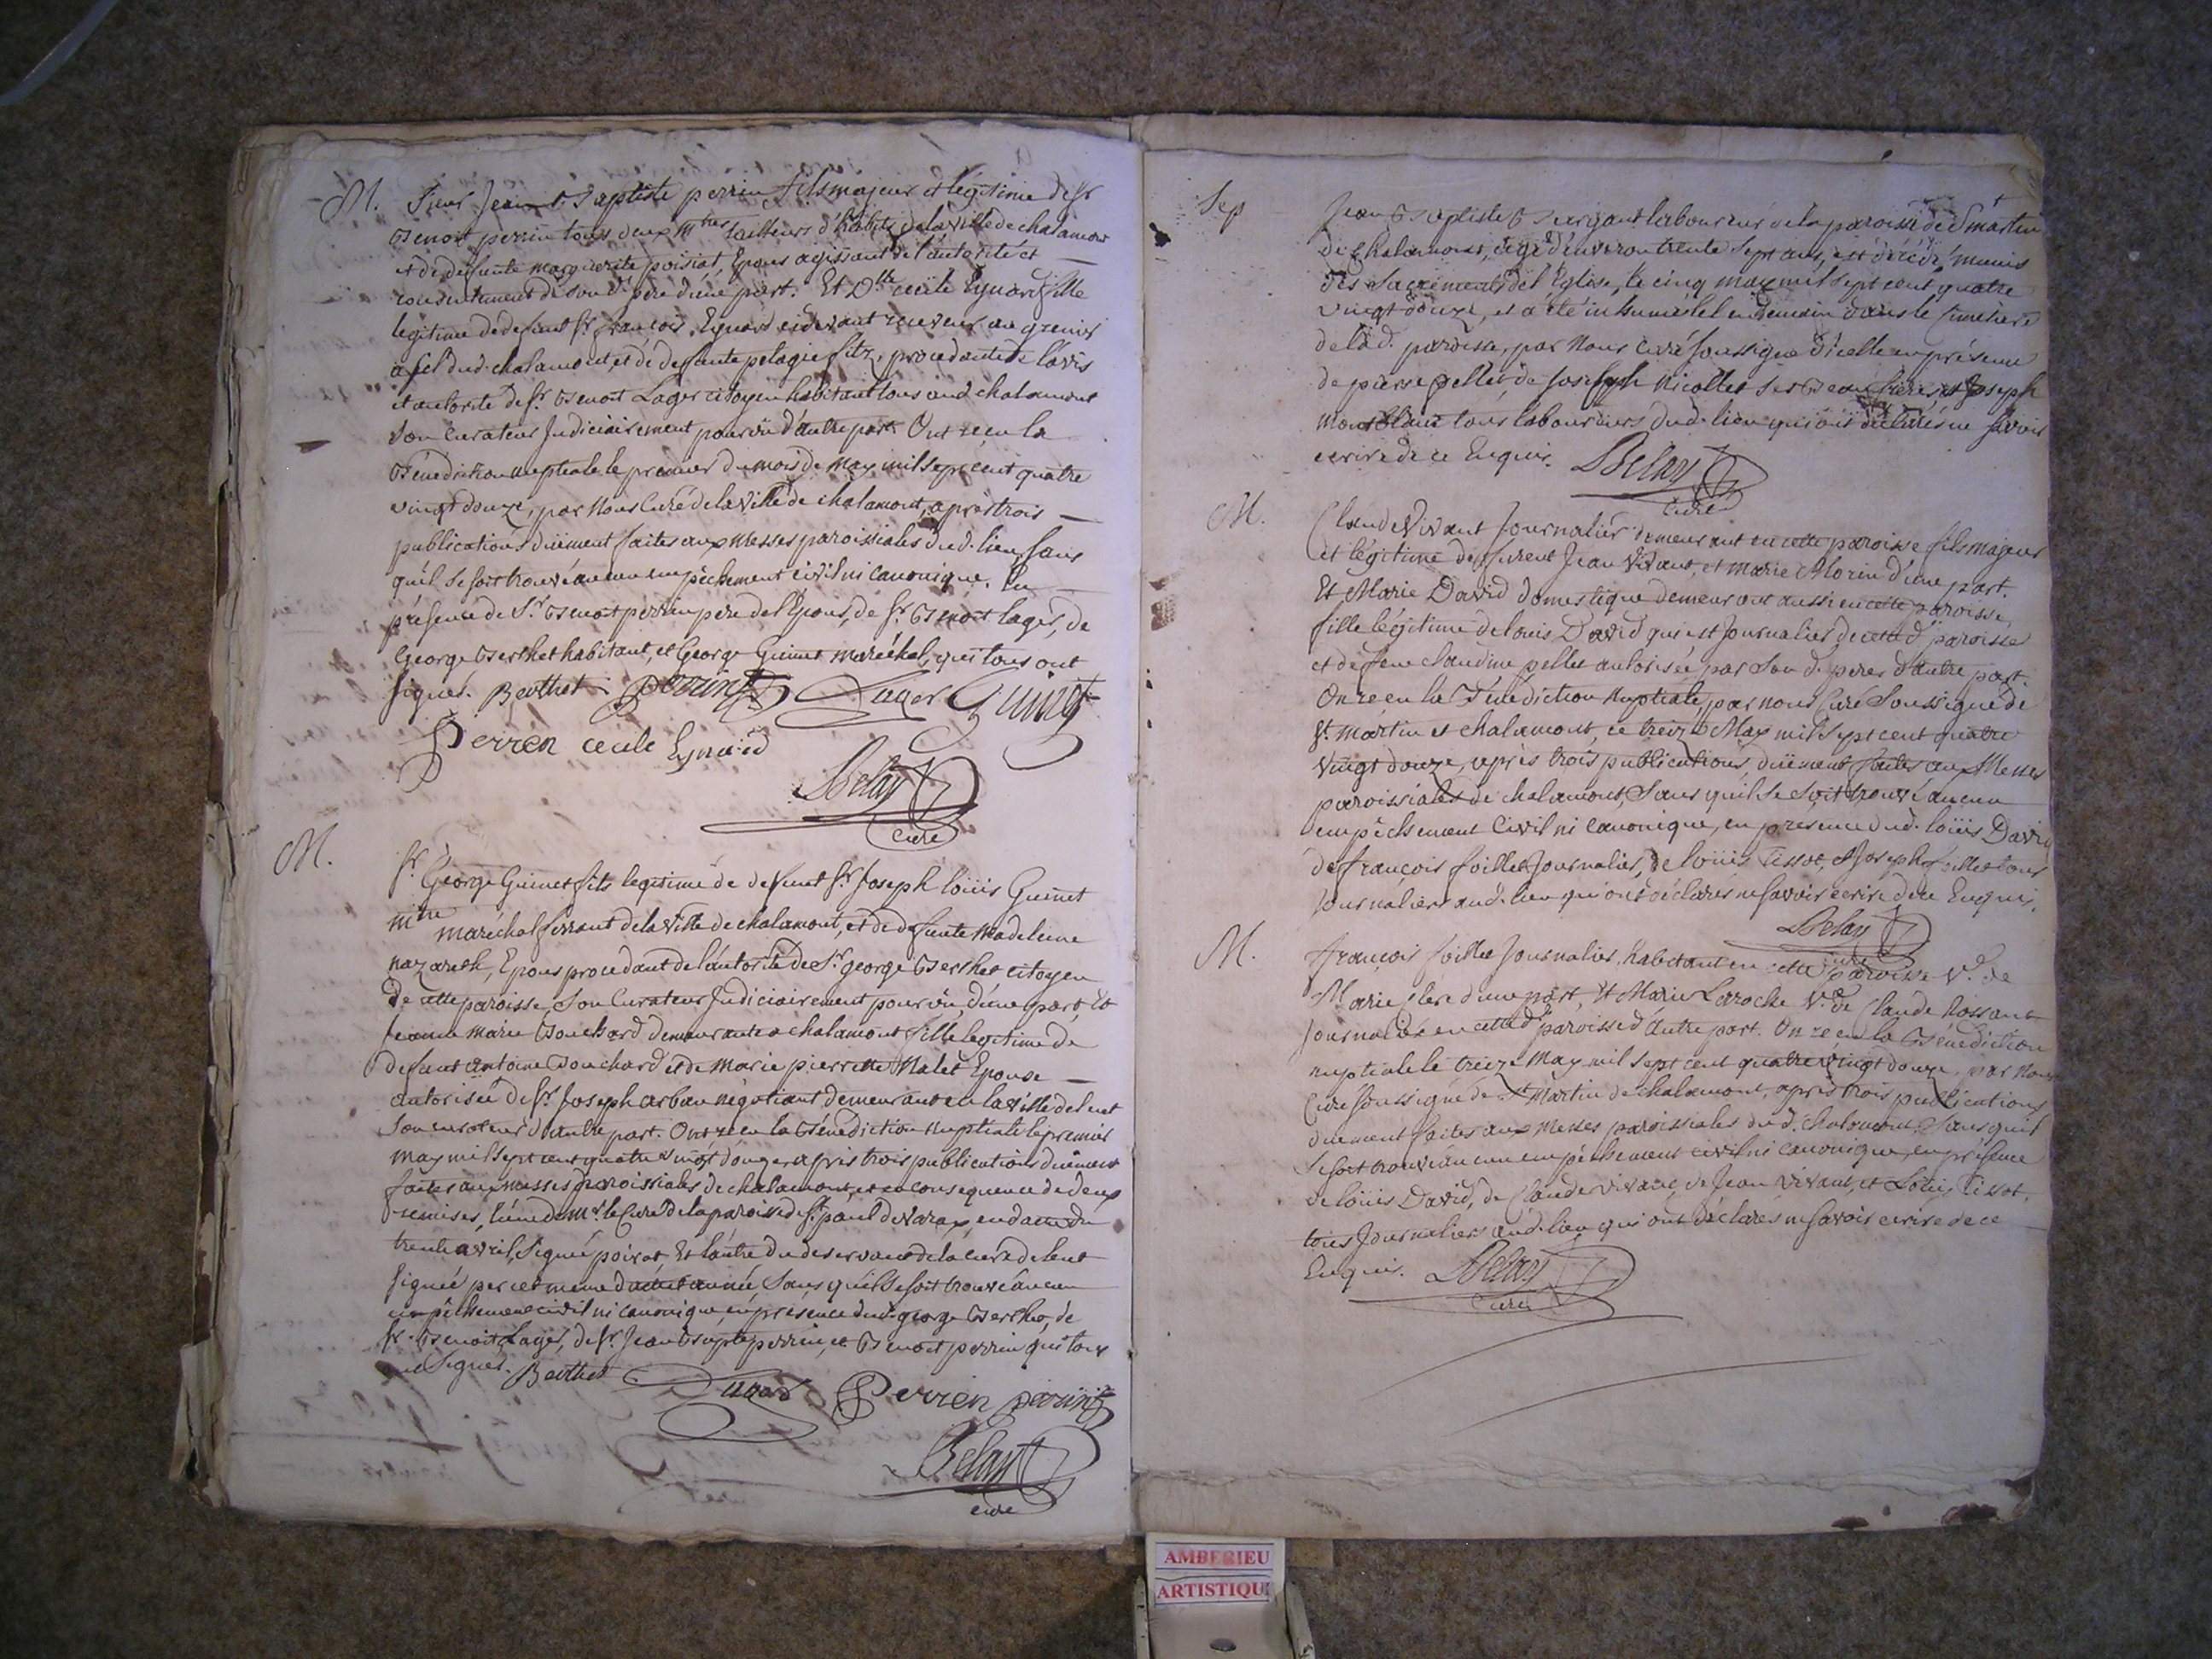 M. Sieur Jean Baptiste perrin fils majeur et légitime de Sr
Benoit perrin tous deux mtres tailleurs d'habits de la ville de chalamont
et de defunte marguerite poisiat, Epoux agissant de l'autorité et
consentement de son d. père d'une part. Et Dlle cecile Eynard fille
legitime de defunt Sr françois Eynard cidevant receveur au grenier
a sel dud. chalamont, et de defunte pelagie fitz, procedante de l'avis
et autorité de Sr Benoit Lager citoyen habitant tous aud chalamont
son Curateur Judiciairement pourvû d'autre part. Ont reçu la
Bénédiction nuptiale le premier du mois de may mil sept cent quatre
vingt douze, par Nous Curé de la ville de chalamont, après trois
publications duëment faites aux Messes paroissiales dud. lieu sans
qu'il se soit trouvé aucun empêchement civil ni canonique. En
présence de Sr Benoit perrin père de l'Epoux, de Sr Benoit lager, de
George Berthet habitant, et George Guinet maréchal, qui tous ont
signés. Berthet perrin Lager Guinet
Perren cecile Eynard
Belay
curé
M. Sr George Guinet fils legitime de defunt Sr Joseph loüis Guinet
mtre maréchal ferrant de la ville de chalamont, et de defunte Madeleine
nazareth, Epoux procedant de l'autorité de Sr george Berthet citoyen
de cette paroisse, son Curateur Judiciairement pourvû, d'une part. Et
jeanne marie Bouchard demeurante a chalamont fille legitime de
defunt antoine Bouchard et de Marie pierrette Malet Epouse
autorisée de Sr Joseph arban négotiant demeurant en la ville de lent
son curateur d'autre part. Ont reçu la Bénédiction Nuptiale le premier
may mil sept cent quatre vingt douze, après trois publications duëment
faites aux messes paroissiales de chalamont, et en consequence de deux
remises, l'une de Mr. le Curé de la paroisse de St. paul de varax, en datte du
trente avril, signée poirot, Et l'autre du deservant de la cure de lent
signée par cet meme datte et année, sans qu'il se soit trouvé aucun
empêchement civil ni canonique, en présence dud. george Berthet, de
Sr. Benoit Lager, de Sr. Jean Bapte perrin, et Benoit perrin qui tous
ont signés. Berthet Perrien perrin
Belay
curé
Sep Jean Baptiste laboureur de la paroisse de St martin
de Chalamont, agé d'environ trente sept ans, est décédé, munis
des Sacrements de l'Eglise, le cinq may mil sept cent quatre
vingt douze, et a été inhumé le lendemain dans le cimetière
de lad. paroisse, par Nous curé soussigné d'icelle en présence
de pierre pellet, de Joseph Nicollet ses Beau frères, et Joseph
Montblanc tous laboureurs dud. lieu qui ont déclarés ne savoir
ecrire de ce Enquis. Belay
curé
M. Claude Vivant Journalier demeurant en cette paroisse fils majeur
et légitime de furent Jean Vivant, et marie Morin d'une part.
Et Marie David domestique demeurant aussi en cette paroisse,
fille légitime de louis David qui est Journalier de cette d. paroisse
et de feue claudine pellet autorisée par son d. pere, d'autre part.
On reçu la Bénédiction Nuptiale, par nous Curé Soussigné de
St. martin et chalamont, ce treize May mil sept cent quatre
vingt douze, après trois publications duëment faites aux Messes
paroissiales de chalamont, sans qu'il se soit trouvé aucun
empêchement Civil ni canonique, en présence dud. loüis David
de françois foillet Journalier, de loüis tissot, et Joseph foillet tous
Journaliers aud. lieu qui ont déclarés ne savoir ecrire de ce Enquis.
Belay
curé
M. françois foillet Journalier, habitant en cette paroisse Vf. de
Marie Clere d'une part, Et Marie Laroche Ve. de Claude Rossant
Journalier en cette d. paroisse d'autre part. On reçu la Bénédiction
nuptiale le treize May mil sept cent quatre vingt douze, par Nous
Curé soussigné de St Martin de chalamont, après trois publications
duement faites aux Messes paroissiales dud. chalamont, sans qu'il
se soit trouvé aucun empêchement civil ni canonique, en présence
de loüis David, de Claude vivant, de Jean Vivant, et Louis tissot,
tous Journaliers aud. lieu qui ont déclarés ne savoir ecrire de ce
Enquis. Belay
curé
AMBERIEU
ARTISTIQU